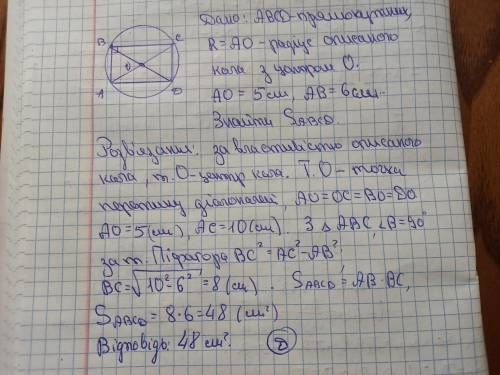 Дано: ABCD-прямокутник,
B C
R=AO-радіус описаного
O
кола з центром O.
A D
AO = 5см, AB = 6см.
Знайти SABCD.
Розв'язання. за властивістю описаного
кола, т.O-центр кола. Т.O-точка
перетину діагоналей, AO=OC=BO=DO
AO=5(см), AC=10(см). З △ABC, ∠B=90°
за т. Піфагора BC²=AC²-AB²,
BC=√10²-6²=8(см). SABCD=AB·BC,
SABCD=8·6=48 (см²)
Відповідь: 48 см².